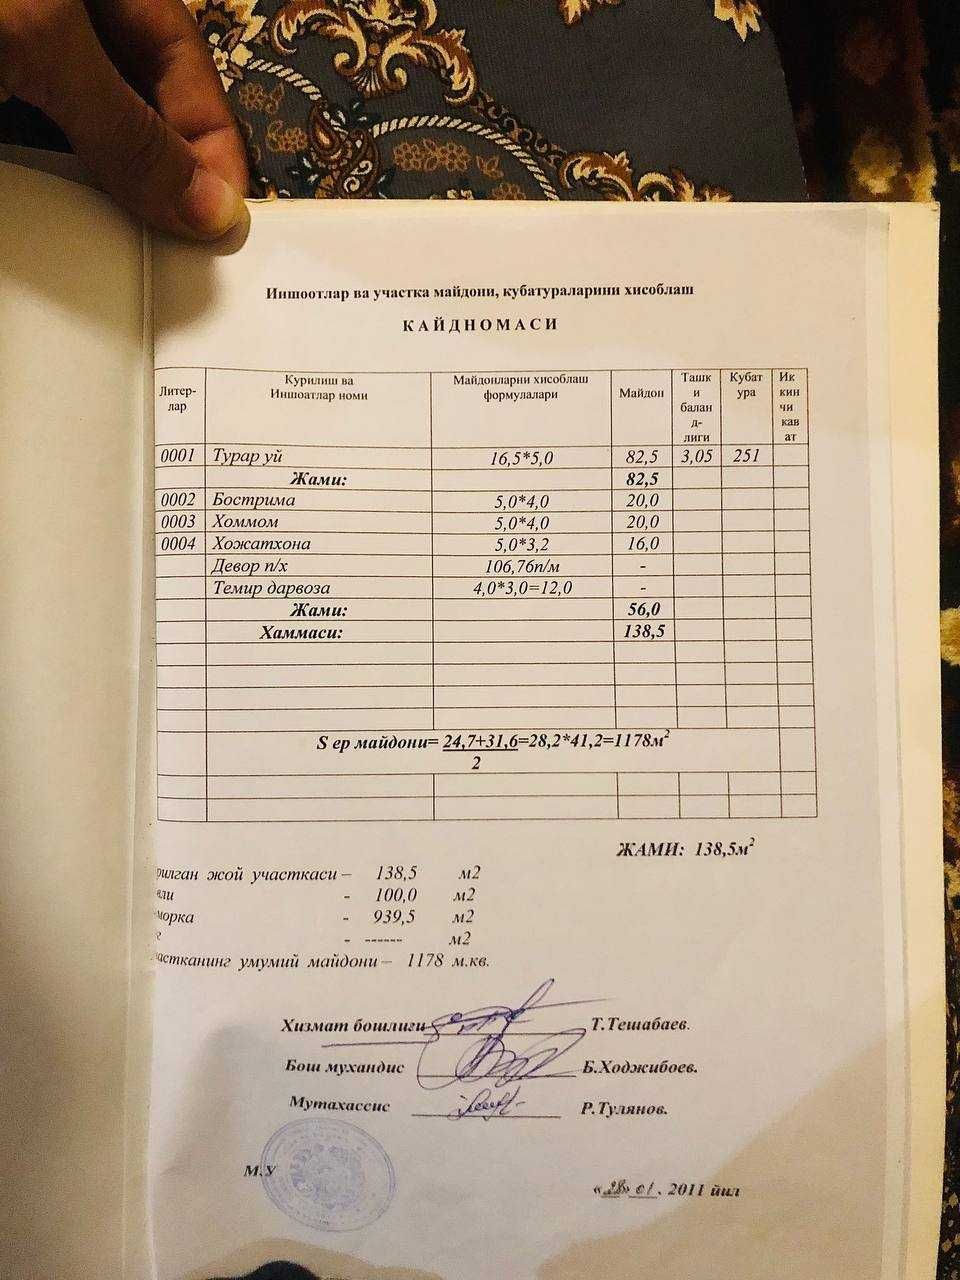 Иншоотлар ва участка майдони, кубатураларини хисоблаш
КАЙДНОМАСИ
Литер-лар Курилиш ва Иншоатлар номи Майдонларни хисоблаш формулалари Майдон Ташки баланд-лиги Кубатура Иккинчи кават
0001 Турар уй 16,5*5,0 82,5 3,05 251
Жами: 82,5
0002 Бострима 5,0*4,0 20,0
0003 Хоммом 5,0*4,0 20,0
0004 Хожатхона 5,0*3,2 16,0
Девор п/х 106,76п/м -
Темир дарвоза 4,0*3,0=12,0 -
Жами: 56,0
Хаммаси: 138,5
S ер майдони= 24,7+31,6=28,2*41,2=1178м²
2
ЖАМИ: 138,5м²
рилган жой участкаси – 138,5 м2
вли - 100,0 м2
морка - 939,5 м2
г - ------ м2
астканинг умумий майдони – 1178 м.кв.
Хизмат бошлиги Т.Тешабаев.
Бош мухандис Б.Ходжибоев.
Мутахассис Р.Тулянов.
М.У
«28» 01. 2011 йил